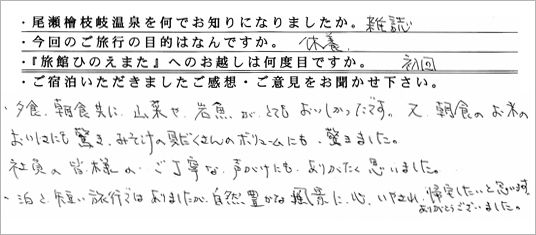 ・尾瀬檜枝岐温泉を何でお知りになりましたか。雑誌
・今回のご旅行の目的はなんですか。 休養
・『旅館ひのえまた』へのお越しは何度目ですか。 初回
・ご宿泊いただきましたご感想・ご意見をお聞かせ下さい。
・夕食、朝食共に、山菜や、岩魚、がとてもおいしかったです。又、朝食のお米の
おいしさにも驚き、みそ汁の具だくさんのボリュームにも、驚きました。
社員の皆様の、ご丁寧な声がけにも、ありがたく思いました。
・泊と、短い旅行ではありましたが、自然豊かな風景に、心、いやされ、帰宅したいと思います。
ありがとうございました。